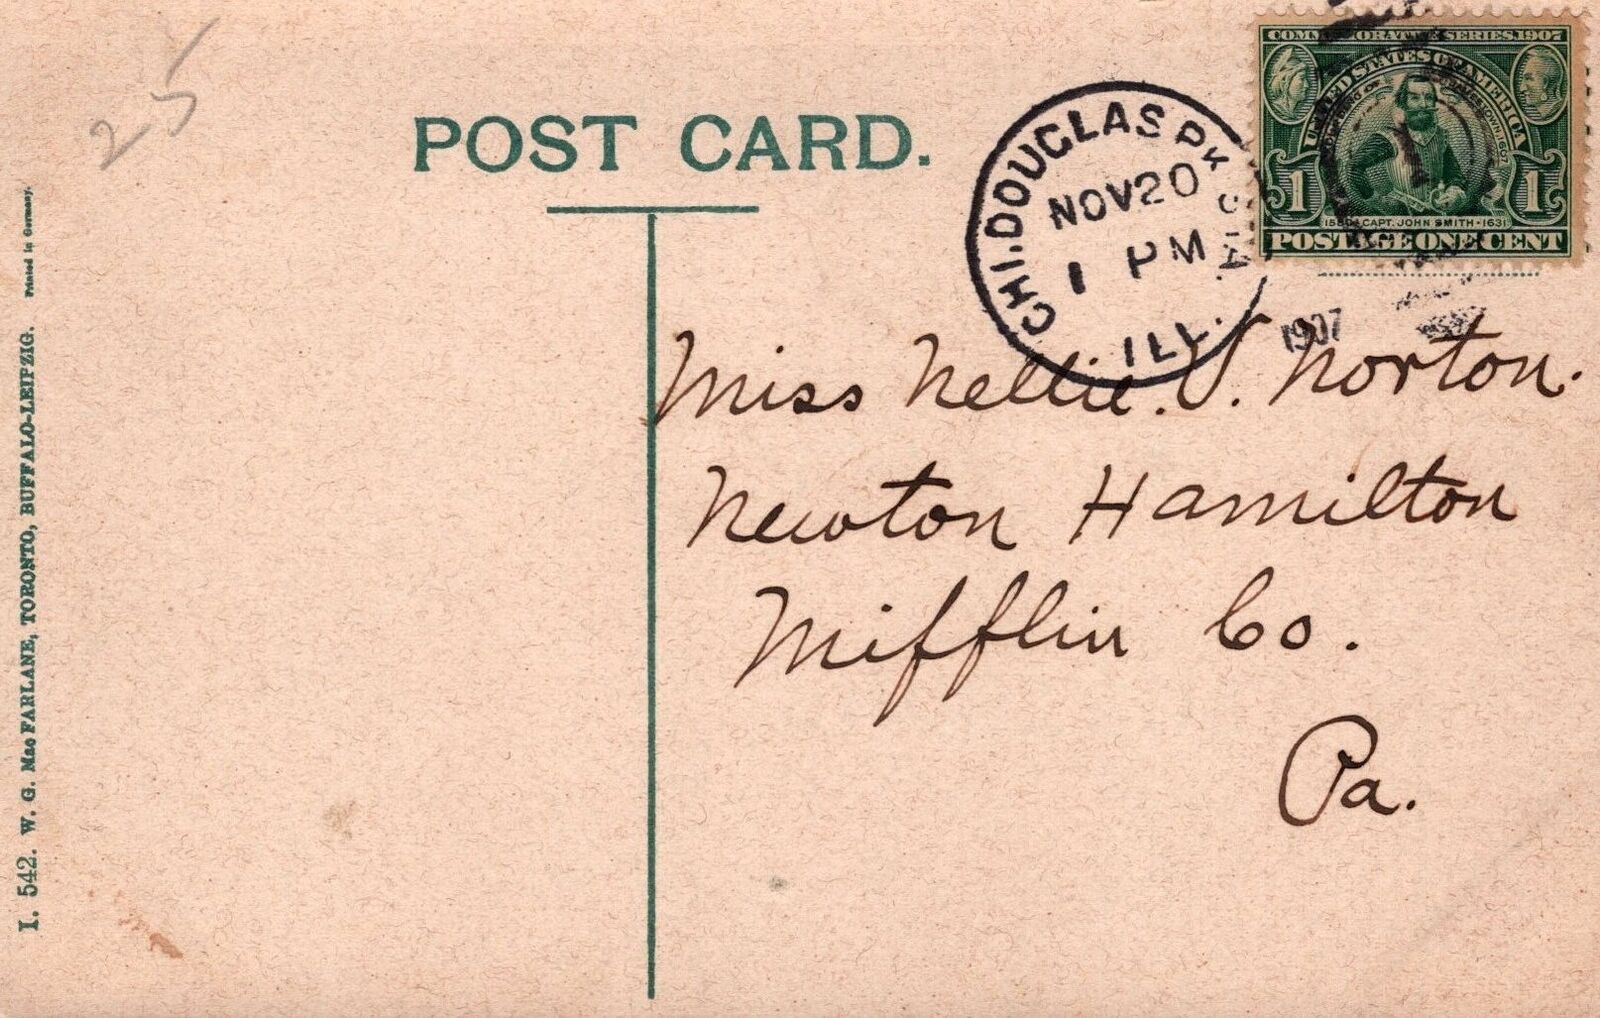 25
POST CARD.
COMMEMORATIVE SERIES 1907
UNITED STATES OF AMERICA
FOUNDING OF JAMESTOWN 1607
1 1
1580 CAPT. JOHN SMITH · 1631
POSTAGE ONE CENT
CHI. DOUGLAS PK STA.
NOV 20
1 PM
ILL.
1907
Miss Nellie. V. Norton.
Newton Hamilton
Mifflin Co.
Pa.
I. 542. W. G. Mac FARLANE, TORONTO, BUFFALO-LEIPZIG. Printed in Germany.